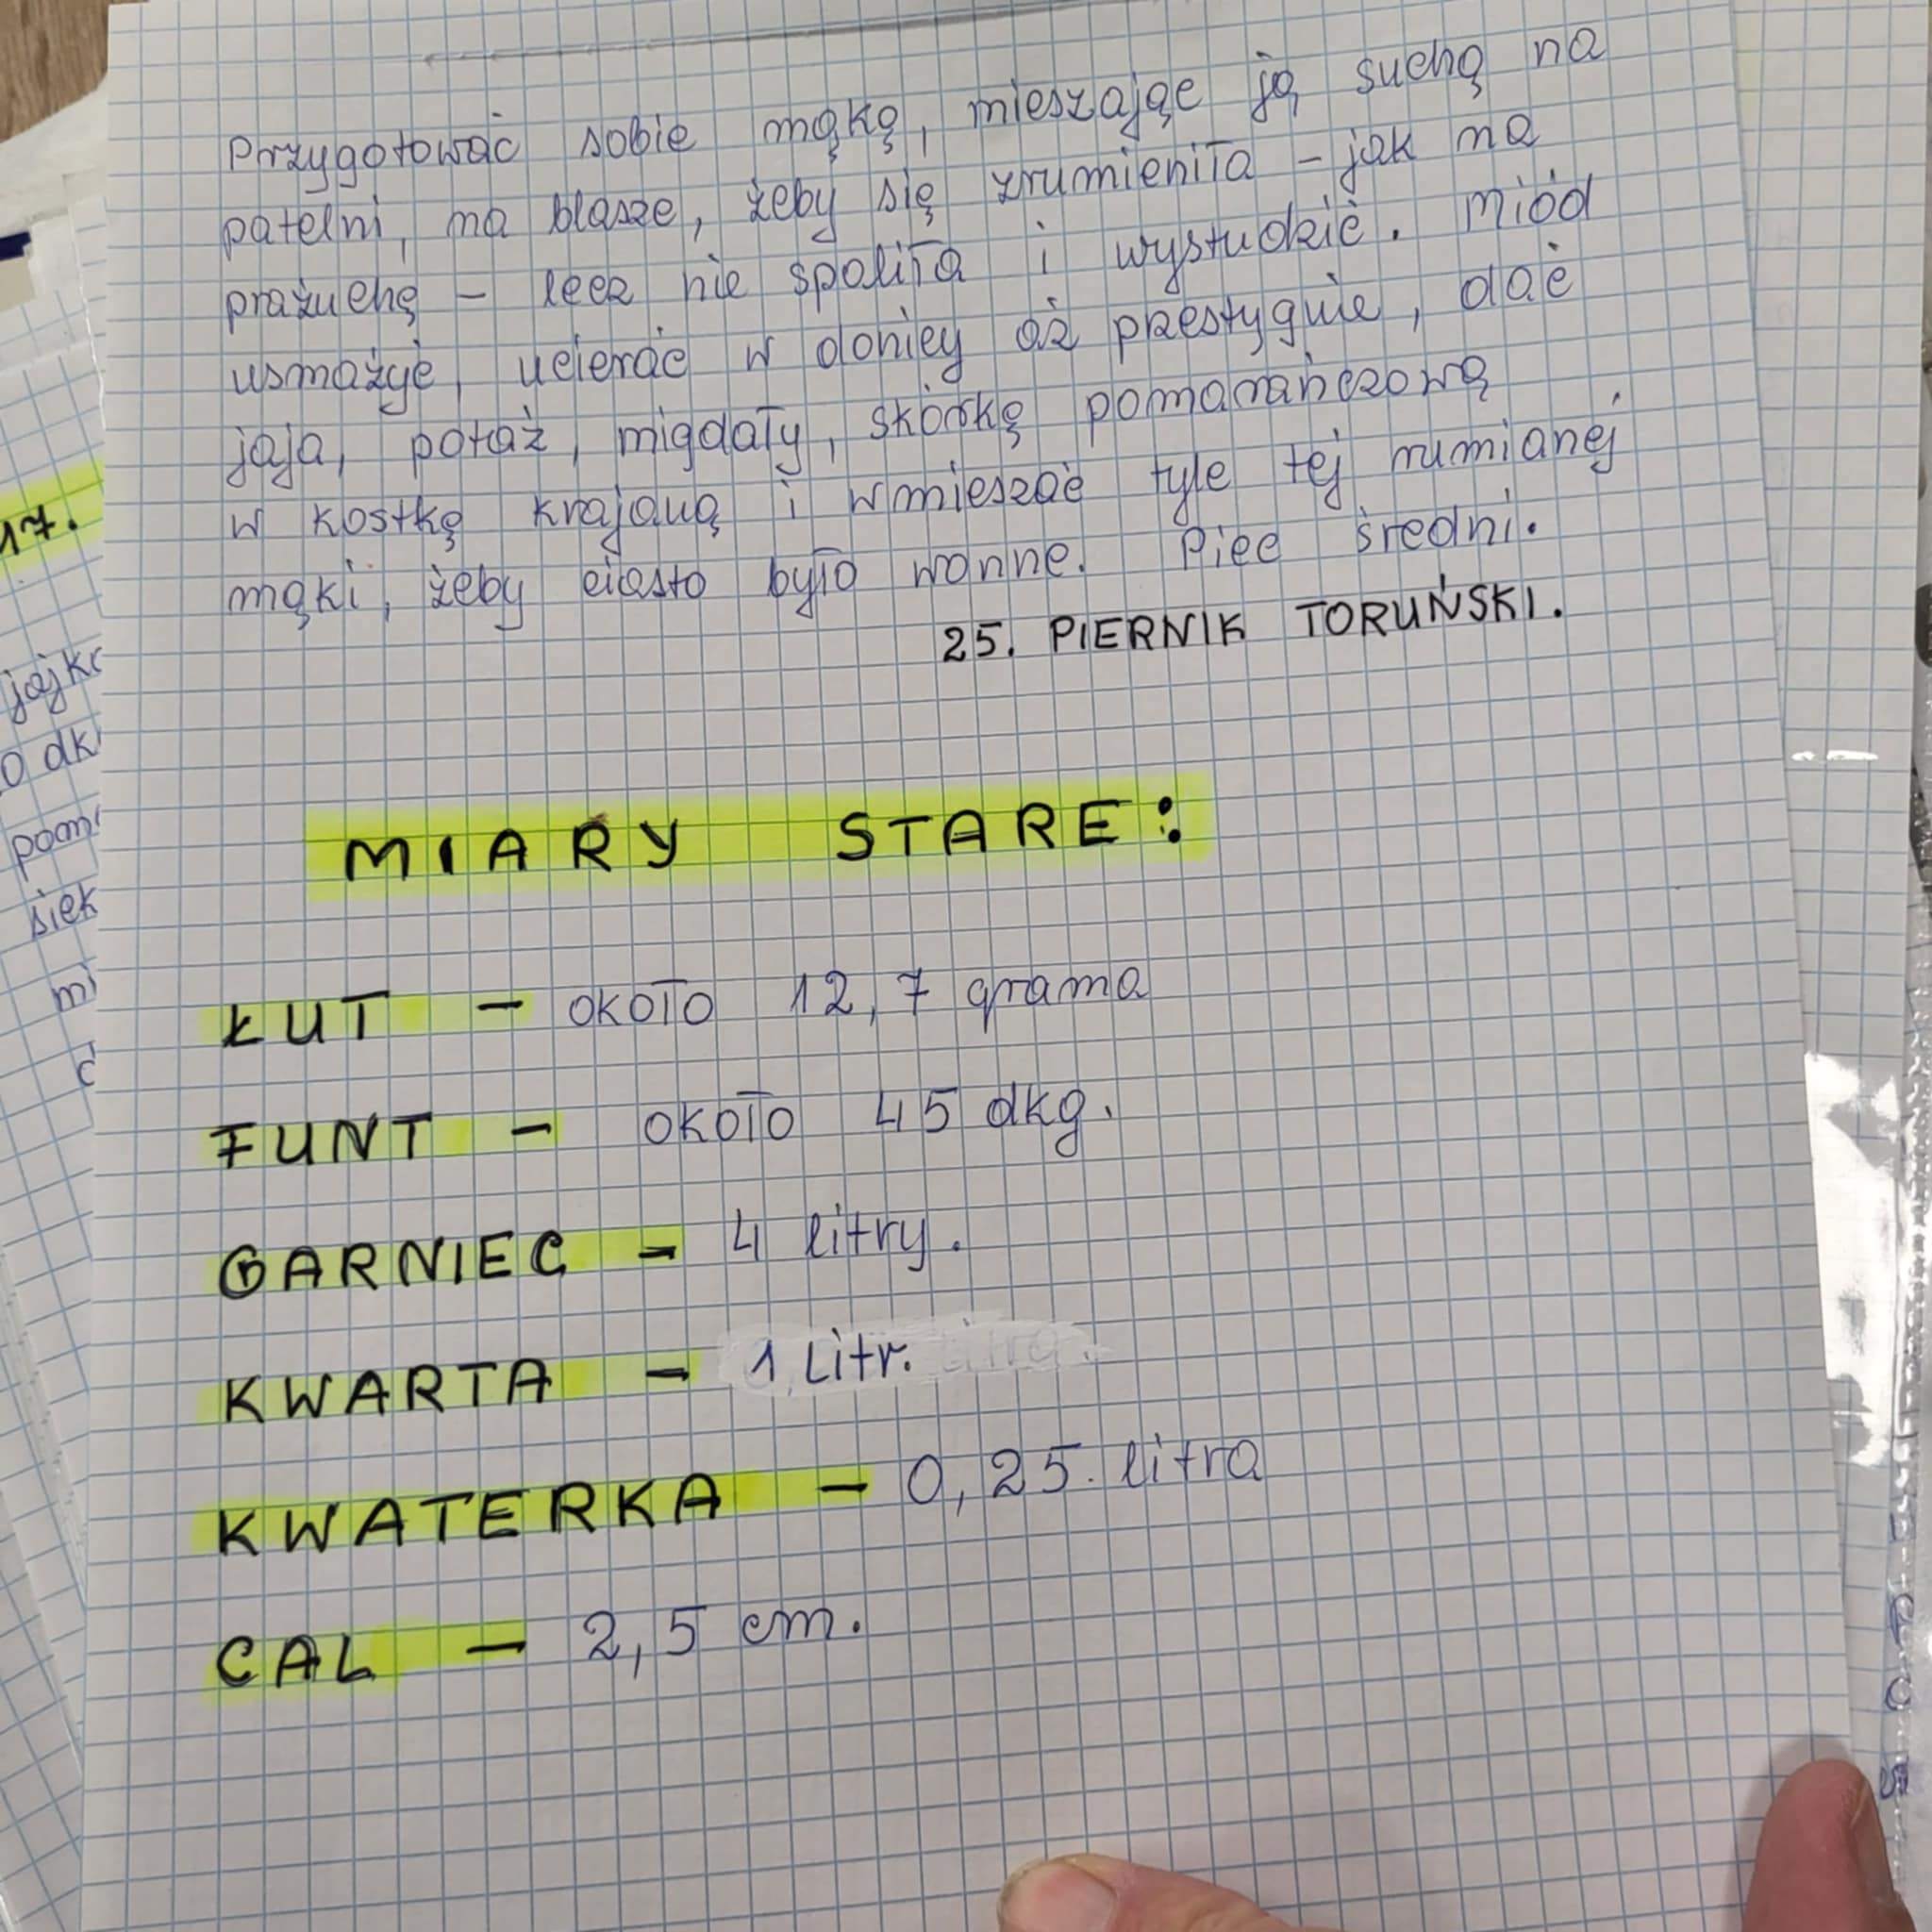 Przygotować sobie mąkę, mieszając ją suchą na
patelni, na blasze, żeby się zrumieniła - jak na
prażuchę - lecz nie spaliła i wystudzić. Miód
usmażyć, ucierać w donicy aż przestygnie, dać
jaja, potaż, migdały, skórkę pomarańczową
w kostkę krajaną i wmieszać tyle tej rumianej
mąki, żeby ciasto było wonne. Piec średni.
25. PIERNIK TORUŃSKI.
MIARY STARE:
ŁUT - około 12,7 grama
FUNT - około 45 dkg.
GARNIEC - 4 litry.
KWARTA - 1 Litr.
KWATERKA - 0,25. litra
CAL - 2,5 cm.
17.
jajk
0 dk
pom
siek
mi